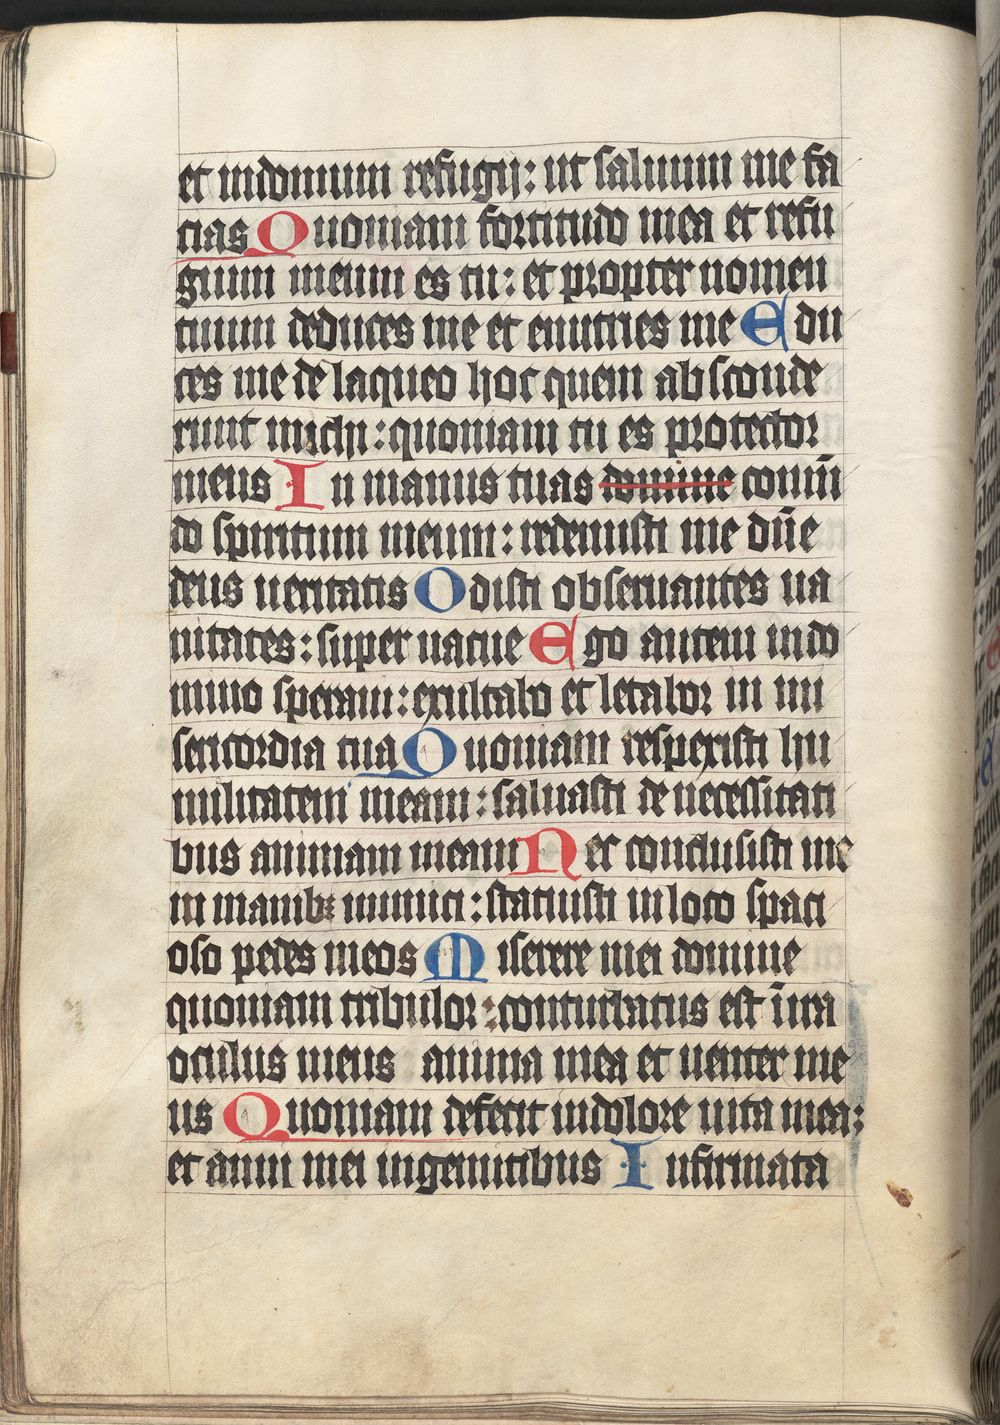 et indomum refugij: ut saluum me fa
cias Quoniam fortitudo mea et refu
gium meum es tu: et propter nomen
tuum deduces me et enutries me Edu
ces me de laqueo hoc quem absconde
runt michi: quoniam tu es protector
meus In manus tuas domine com̄
do spiritum meum: redemisti me dn̄e
deus ueritatis Odisti obseruantes ua
nitates: super uacue Ego autem indo
mino speraui: exultabo et letabor in mi
sericordia tua Quoniam respexisti hu
militatem meam: saluasti de necessitati
bus animam meam Nec conclusisti me
in manibꝫ inimici: statuisti in loco spaci
oso pedes meos Miserere mei domine
quoniam tribulor: conturbatus est īn ira
oculus meus anima mea et uenter me
us Quoniam defecit indolore uita mea:
et anni mei ingemitibus Infirmata